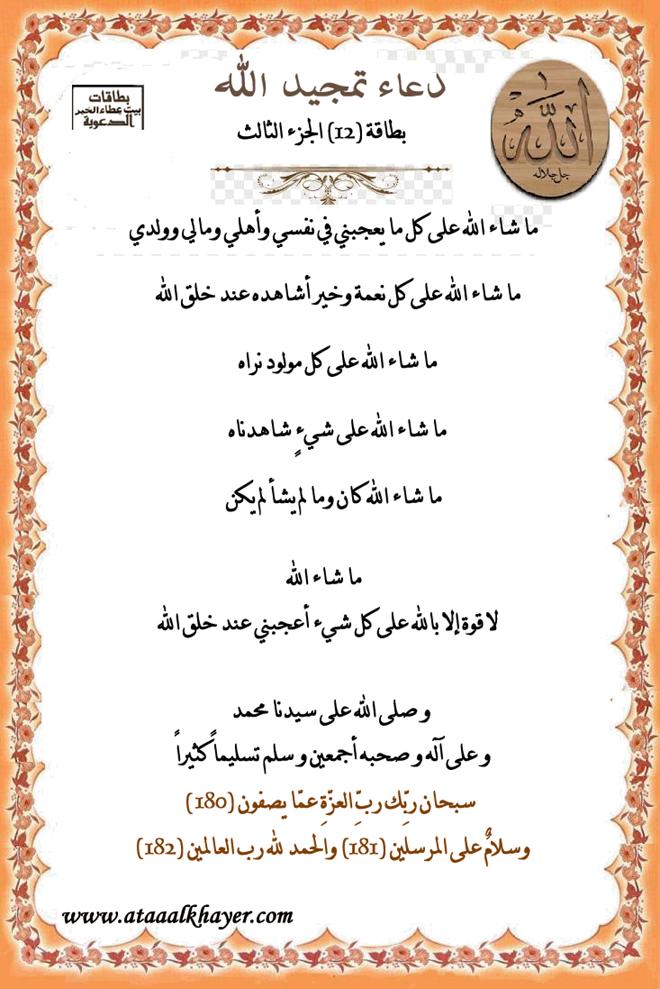 دعاء تمجيد الله
بطاقات
بيت عطاء الخير
الدعوية
الله
جل جلاله
بطاقة (12) الجزء الثالث
ما شاء الله على كل ما يعجبني في نفسي وأهلي ومالي وولدي
ما شاء الله على كل نعمة وخير أشاهده عند خلق الله
ما شاء الله على كل مولود نراه
ما شاء الله على شيءٍ شاهدناه
ما شاء الله كان وما لم يشأ لم يكن
ما شاء الله
لا قوة إلا بالله على كل شيء أعجبني عند خلق الله
وصلى الله على سيدنا محمد
وعلى آله وصحبه أجمعين وسلم تسليماً كثيراً
سبحان ربّك ربِّ العزّةِ عمّا يصفون (180)
وسلامٌ على المرسلين (181) والحمد لله رب العالمين (182)
www.ataaalkhayer.com